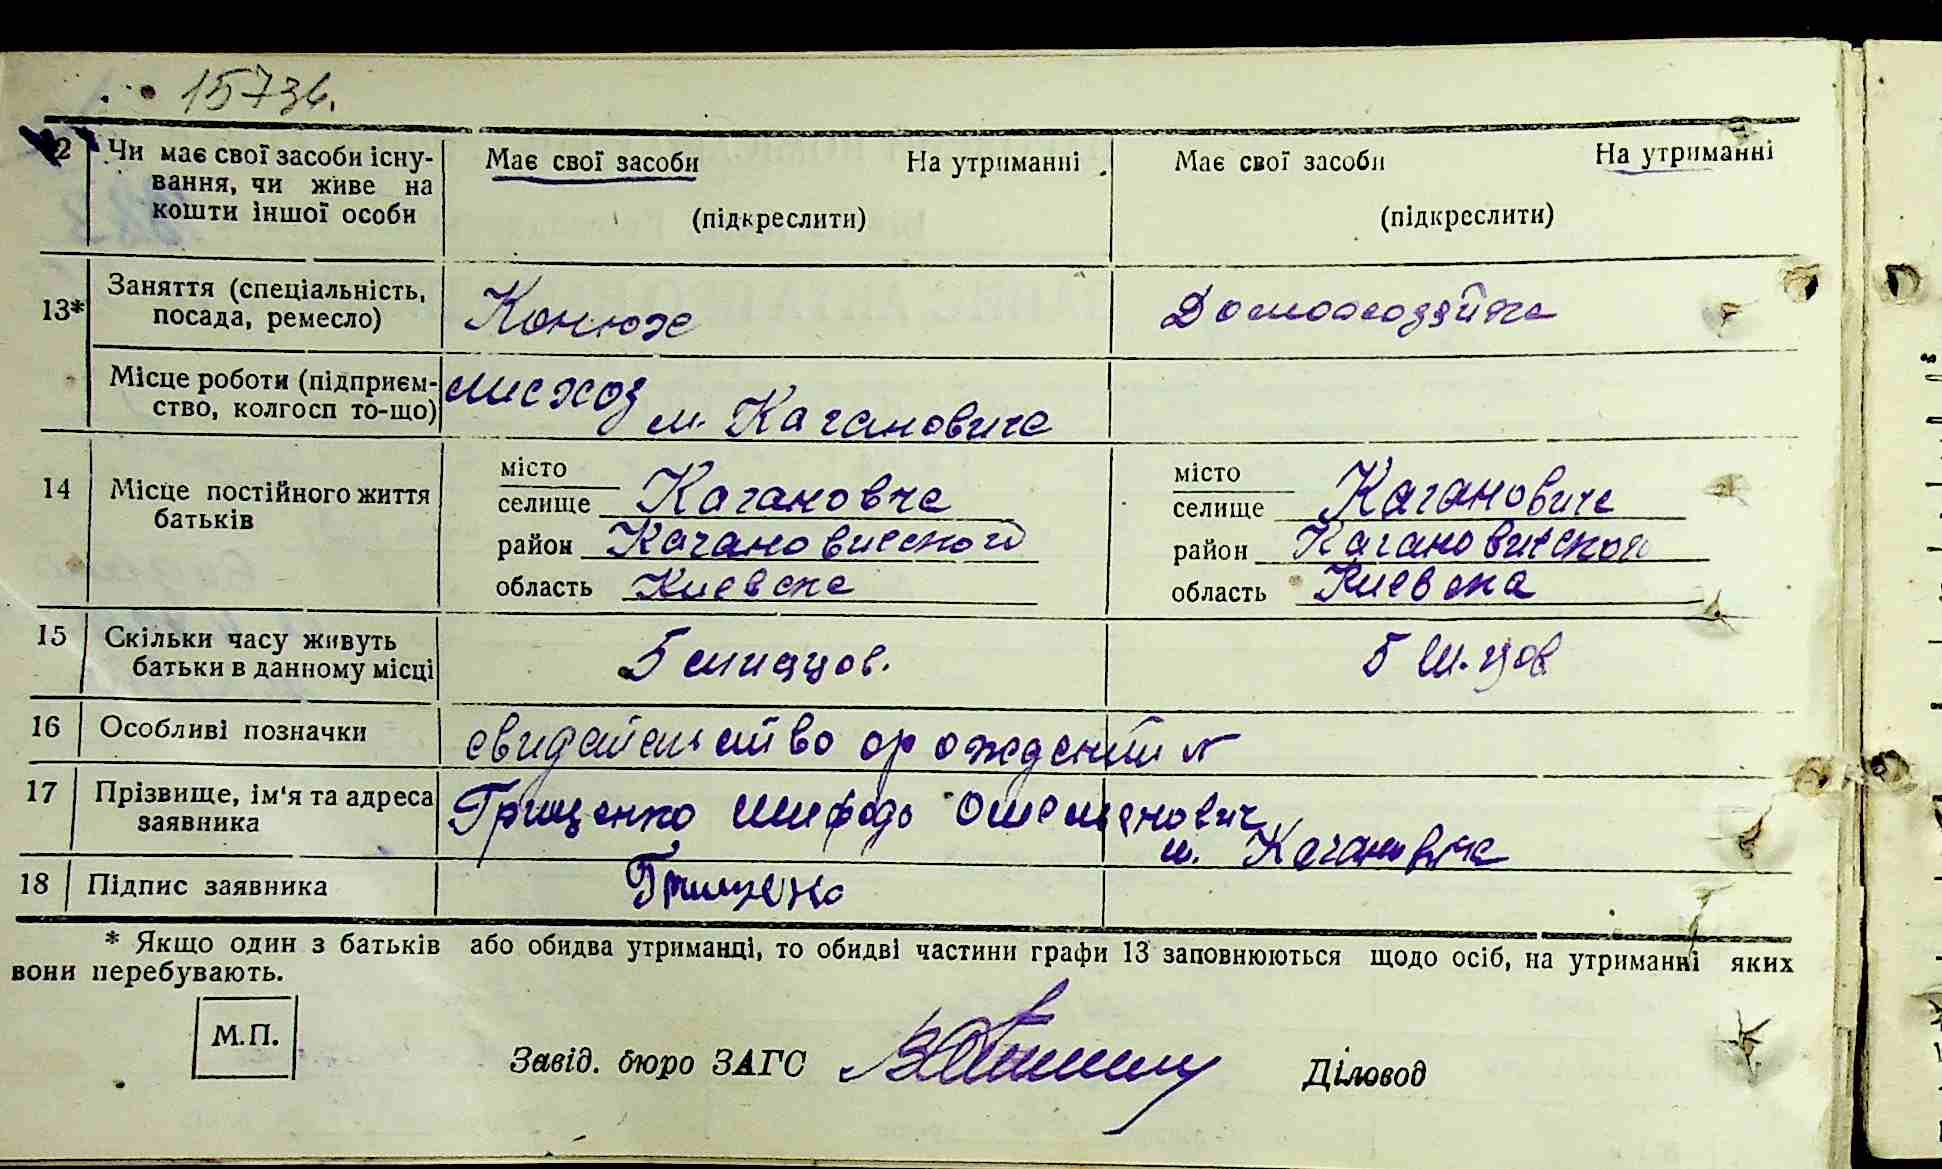 1573б.
2 Чи має свої засоби існу- Має свої засоби На утриманні Має свої засоби На утриманні
вання, чи живе на
кошти іншої особи (підкреслити) (підкреслити)
13* Заняття (спеціальність, Конюх Домохозяйка
посада, ремесло)
Місце роботи (підприєм-
ство, колгосп то-що) м. Кагановича
14 Місце постійного життя
батьків
місто місто
селище Кагановче селище Кагановиче
район район
область Киевска область Киевска
15 Скільки часу живуть 5
батьки в данному місці
16 Особливі позначки рождений №
17 Прізвище, ім'я та адреса Грищенко
заявника м.
18 Підпис заявника
* Якщо один з батьків або обидва утриманці, то обидві частини графи 13 заповнюються щодо осіб, на утриманні яких
вони перебувають.
М.П.
Завід. бюро ЗАГС Діловод